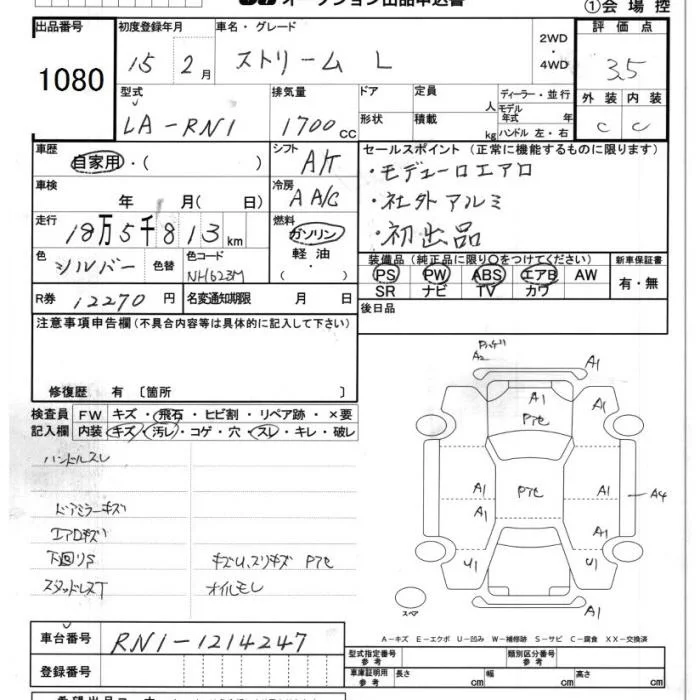 オークション出品申込書 ①会場控
出品番号 初度登録年月 車名・グレード 2WD・4WD 評価点
1080 15年 2月 ストリーム L 3.5
型式 排気量 ドア 定員 人 ディーラー・並行 外装 内装
LA-RN1 1700cc 形状 積載 kg モデル年式 年 ハンドル 左・右 C C
車歴 自家用・( ) シフト A/T セールスポイント (正常に機能するものに限ります)
・モデューロエアロ
車検 年 月( 日) 冷房 A A/C ・社外アルミ
走行 18万5千813km 燃料 ガソリン ・初出品
軽油・( )
色 シルバー 色替 色コード NH623M 装備品 (純正品に限り○をつけてください) 新車保証書
PS PW ABS エアB AW 有・無
SR ナビ TV カワ
R券 12270円 名変通知期限 月 日 後日品
注意事項申告欄(不具合内容等は具体的に記入して下さい)
修復歴 有 〔箇所 〕
検査員 FW キズ・飛石・ヒビ割・リペア跡・×要
記入欄 内装 キズ・汚レ・コゲ・穴・スレ・キレ・破レ
ハンドルスレ
ドアミラーキズ
エアロキズ
下回りS キズU、スリキズ Pアセ
スタッドレスT オイルモレ
A2 A1
A1 A1
Pアセ
A1 Pアセ A1 A4
A1 A1
U1 U1
スペア A1
A-キズ E-エクボ U-凹み W-補修跡 S-サビ C-腐食 XX-交換済
車台番号 RN1-1214247
型式指定番号 参考 類別区分番号 参考
登録番号 車庫証明用 参考 長さ cm 幅 cm 高さ cm